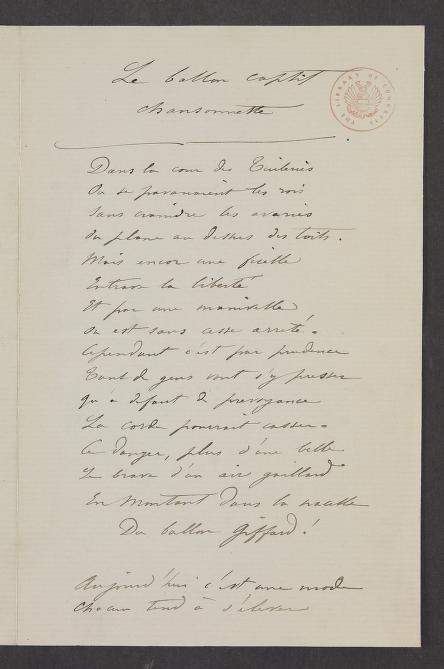 Le ballon captif
chansonnette
THE LIBRARY OF CONGRESS
Dans la cour des Tuileries
Où se pavanaient les rois
Sans craindre les avaries
On plane au dessus des toits.
Mais encor une ficelle
Entrave la liberté
Et par une manivelle
On est sans cesse arrêté.
Cependant c'est par prudence
Tant de gens vont s'y presser
qu'à défaut de prévoyance
La corde pourrait casser.
Ce danger, plus d'une belle
Le brave d'un air gaillard
En montant dans la nacelle
Du ballon Giffard!
Aujourd'hui c'est une mode
Chacun tend à s'élever